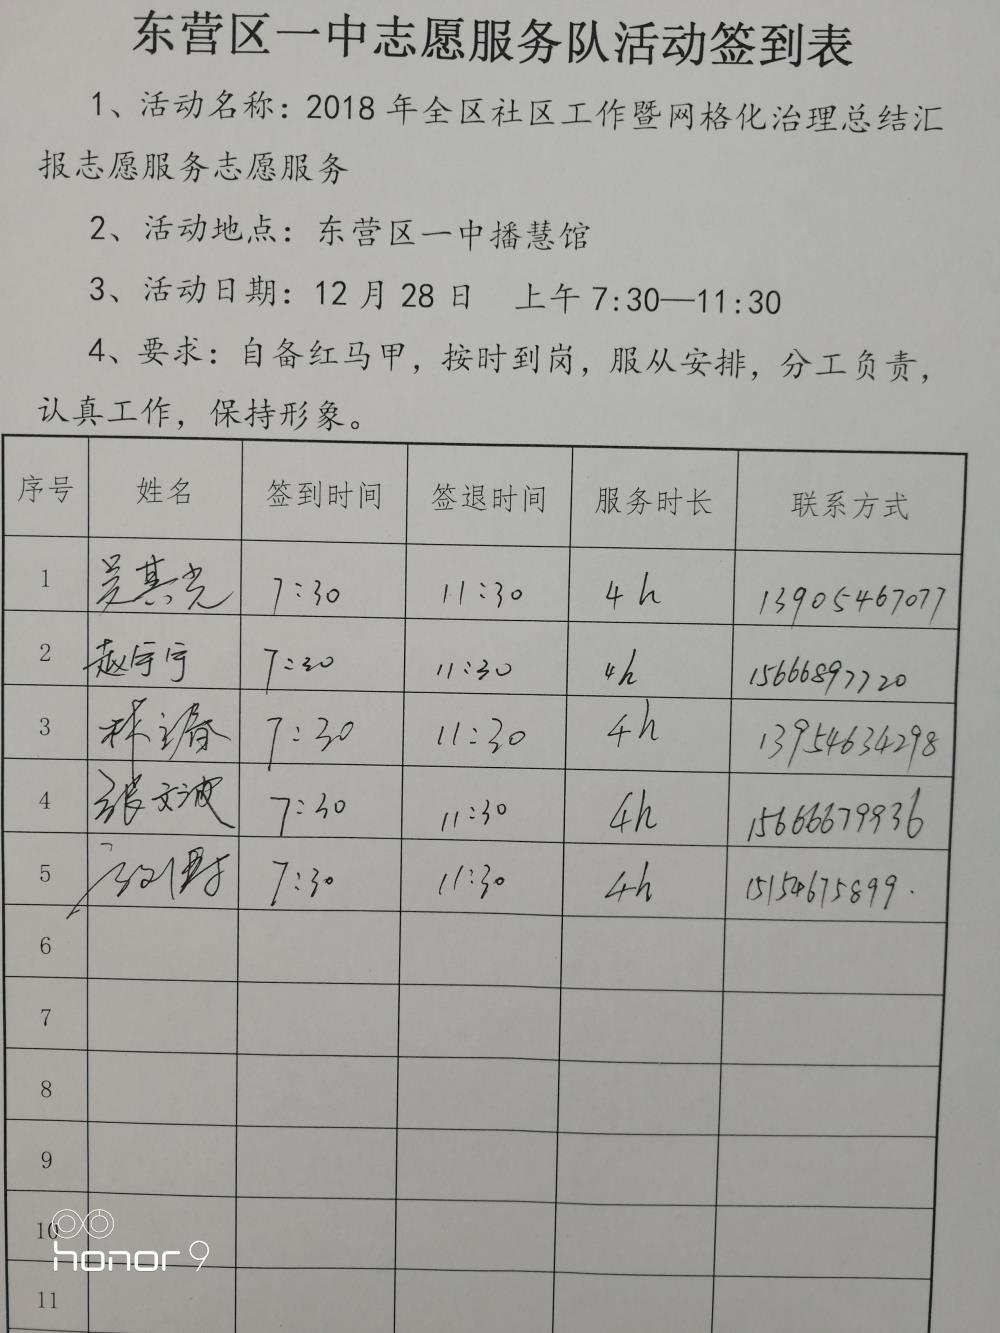 东营区一中志愿服务队活动签到表
1、活动名称：2018年全区社区工作暨网格化治理总结汇
报志愿服务志愿服务
2、活动地点：东营区一中播慧馆
3、活动日期：12月28日 上午7:30—11:30
4、要求：自备红马甲，按时到岗，服从安排，分工负责，
认真工作，保持形象。
序号 姓名 签到时间 签退时间 服务时长 联系方式
1 吴其光 7:30 11:30 4h 13905467077
2 赵宇宁 7:30 11:30 4h 15666897720
3 林 春 7:30 11:30 4h 13954634298
4 张文波 7:30 11:30 4h 15666679936
5 7:30 11:30 4h 15154675899.
6
7
8
9
10
honor 9
11